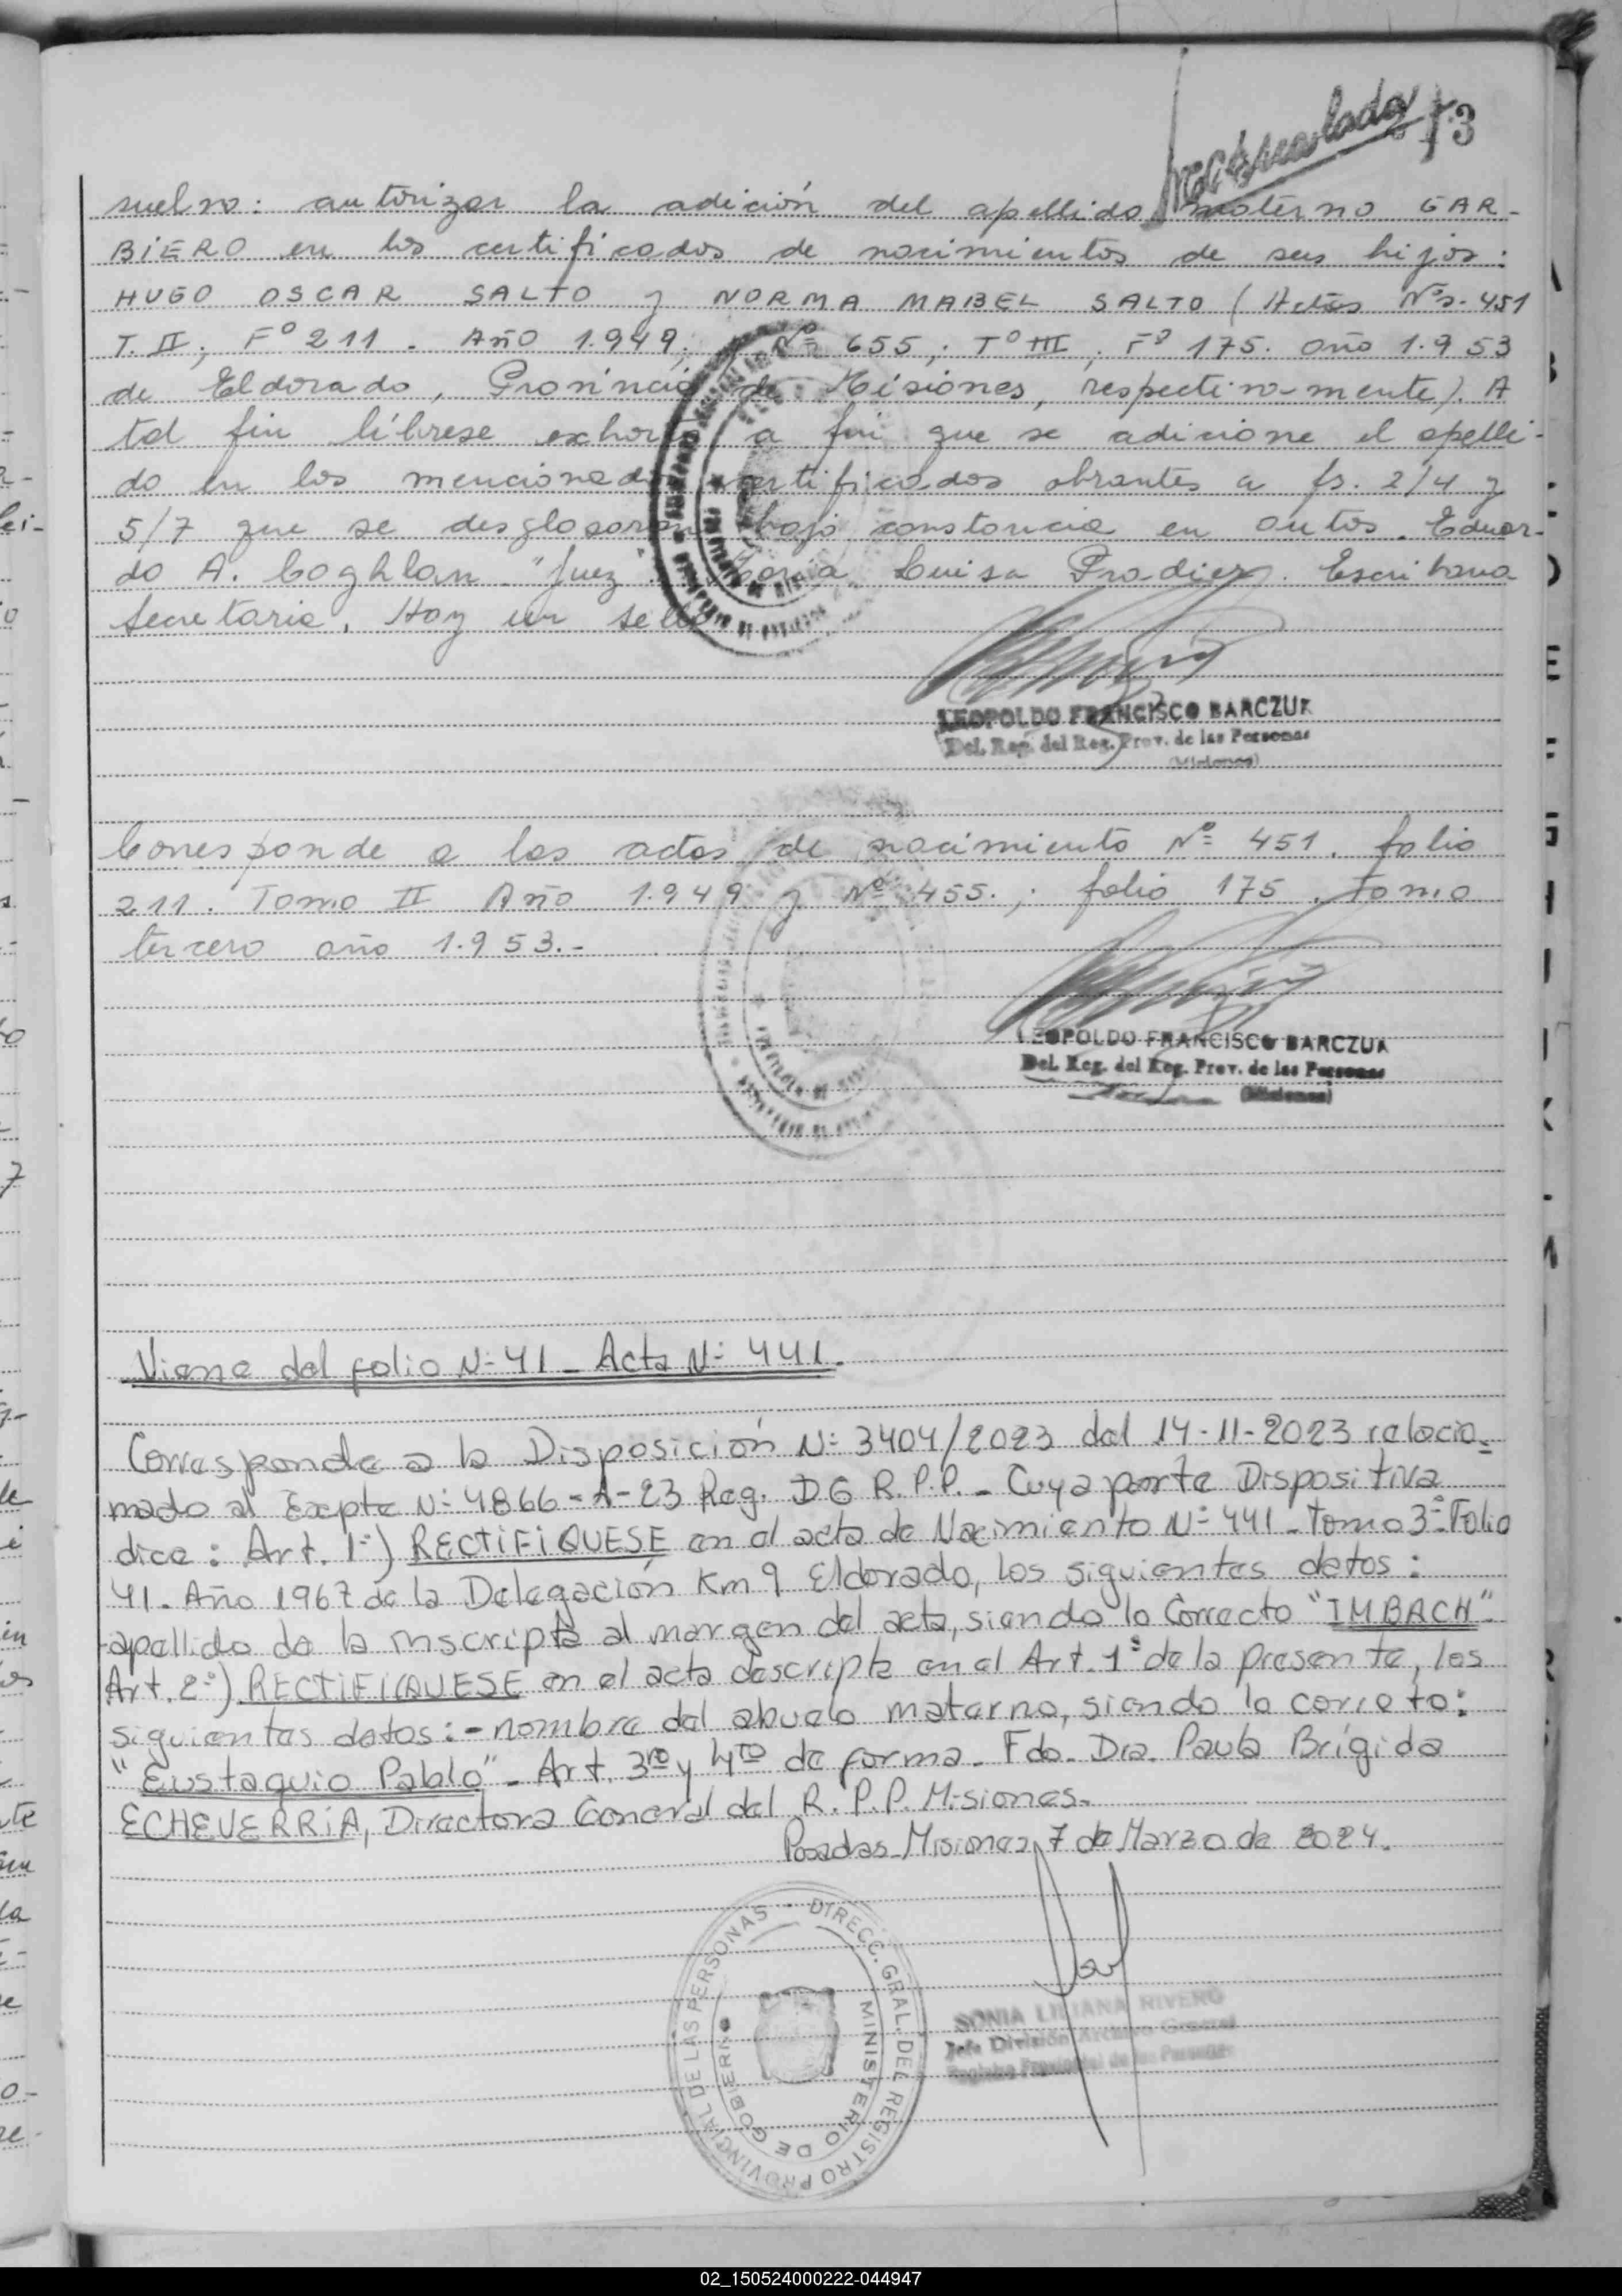 73
suelvo: autorizar la adición del apellido materno GAR-
BIERO en los certificados de nacimientos de sus hijos:
HUGO OSCAR SALTO y NORMA MABEL SALTO (Actas Nos. 451
T. II; Fº 211. Año 1.949; Nº 655; Tº III; Fº 175. año 1.953
de Eldorado, Provincia de Misiones, respectiva-mente). A
tal fin líbrese exhorto a fin que se adicione el apelli-
do en los mencionados certificados obrantes a fs. 2/4 y
5/7 que se desglosarán bajo constancia en autos. Eduar-
do A. Coghlan. "Juez". María Luisa Pradier. Escribana
Secretaria. Hay un sello
LEOPOLDO FRANCISCO BARCZUK
Del. Reg. del Reg. Prov. de las Personas
(Misiones)
Corresponde a las actas de nacimiento Nº 451. folio
211. Tomo II Año 1.949 y Nº 455.; folio 175. Tomo
tercero año 1.953.-
LEOPOLDO FRANCISCO BARCZUK
Del. Reg. del Reg. Prov. de las Personas
(Misiones)
Viene del folio Nº 41 - Acta Nº 441.
Corresponde a la Disposición Nº 3404/2023 del 14-11-2023 relacio-
nado al Expte Nº 4866-A-23 Reg. DG R.P.P. - Cuya parte Dispositiva
dice: Art. 1º) RECTIFIQUESE en el acta de Nacimiento Nº 441 - Tomo 3º Folio
41. Año 1967 de la Delegación Km 9 Eldorado, los siguientes datos:
-apellido de la inscripta al margen del acta, siendo lo Correcto "IMBACH"
Art. 2º) RECTIFIQUESE en el acta descripta en el Art. 1º de la presente, los
siguientes datos: - nombre del abuelo materno, siendo lo correto:
"Eustaquio Pablo" - Art. 3ro y 4to de forma - Fdo. Dra. Paula Brígida
ECHEVERRIA, Directora General del R.P.P. Misiones.
Posadas Misiones, 7 de Marzo de 2024.
DIRECC. GRAL. DEL REGISTRO PROVINCIAL DE LAS PERSONAS
MINISTERIO DE GOBIERNO
SONIA LILIANA RIVERO
Jefe División Archivo General
Registro Provincial de las Personas
02_150524000222-044947